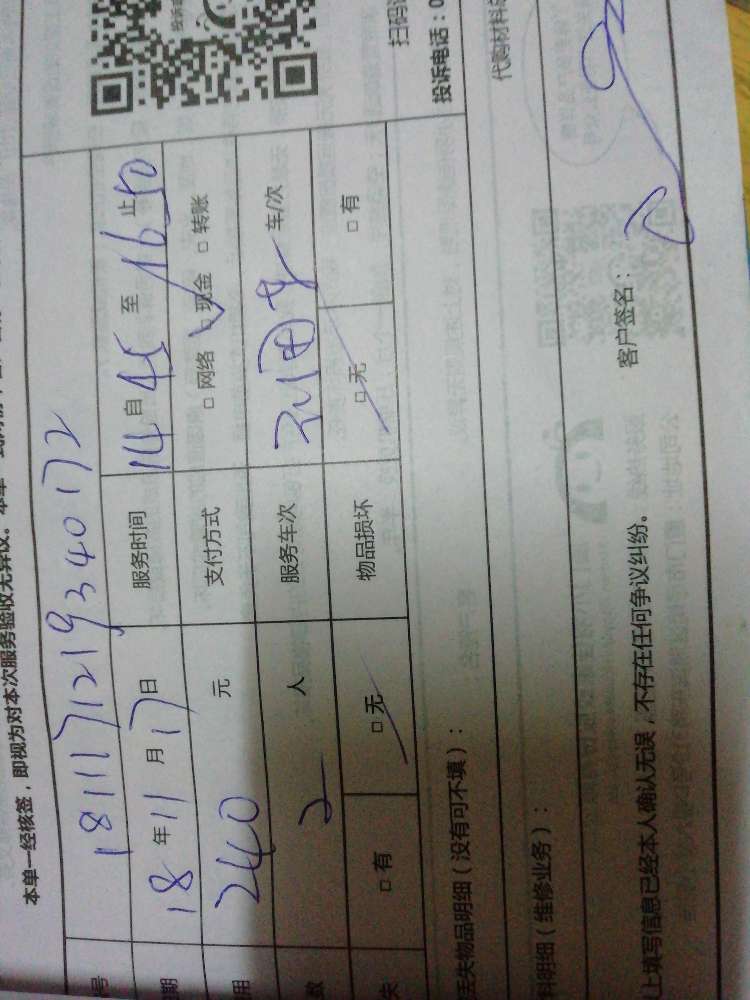 本单一经核签，即视为对本次服务验收无异议。
号 1811171219340172
期 18年11月17日 服务时间 14自45至16止50
用 240元 支付方式 □网络 ☑现金 □转账
数 2人 服务车次 车/次
失 □有 □无 物品损坏 □无 □有
丢失物品明细（没有可不填）：
料明细（维修业务）：
代购材料
上填写信息已经本人确认无误，不存在任何争议纠纷。
客户签名：
扫码
投诉电话：0